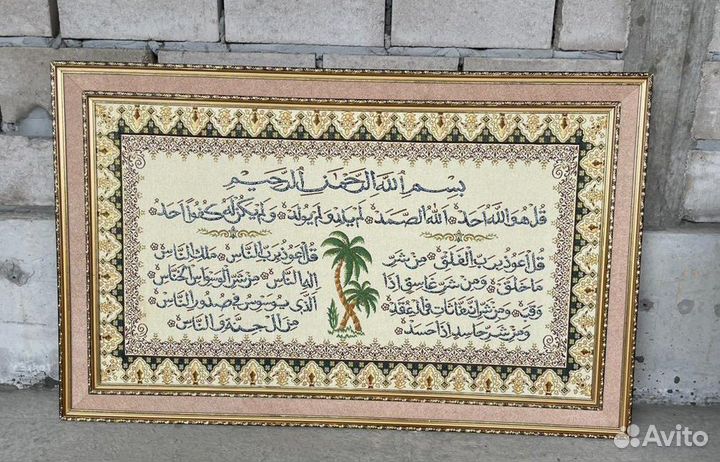 بسم الله الرحمن الرحيم
قل هو الله أحد الله الصمد لم يلد ولم يولد ولم يكن له كفوا أحد
قل أعوذ برب الفلق من شر
ما خلق ومن شر غاسق إذا
وقب ومن شر النفاثات في العقد
ومن شر حاسد إذا حسد
قل أعوذ برب الناس ملك الناس
إله الناس من شر الوسواس الخناس
الذي يوسوس في صدور الناس
من الجنة والناس
Avito